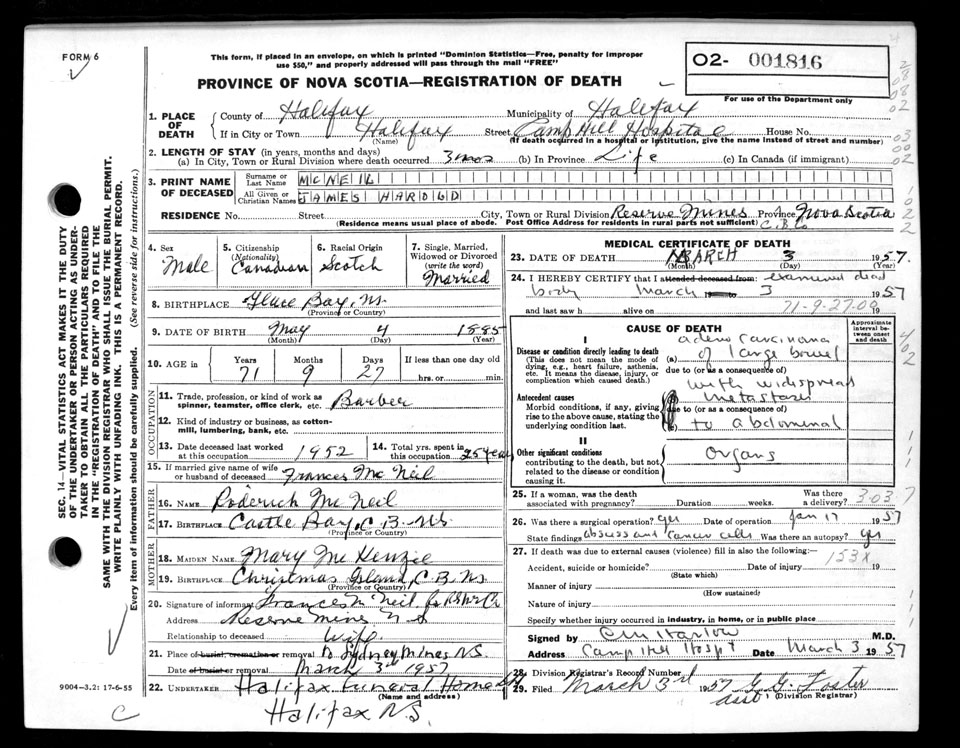 FORM 6
This form, if placed in an envelope, on which is printed "Dominion Statistics—Free, penalty for improper
use $50," and properly addressed will pass through the mail "FREE"
PROVINCE OF NOVA SCOTIA—REGISTRATION OF DEATH
O2- 001816
For use of the Department only
1. PLACE OF DEATH
County of Halifax Municipality of Halifax
If in City or Town Halifax Street Camp Hill Hospital House No.
(Name) (If death occurred in a hospital or institution, give the name instead of street and number)
2. LENGTH OF STAY (in years, months and days)
(a) In City, Town or Rural Division where death occurred 3 mos (b) In Province Life (c) In Canada (if immigrant)
3. PRINT NAME OF DECEASED
Surname or Last Name MCNEIL
All Given or Christian Names JAMES HAROLD
RESIDENCE No. Street City, Town or Rural Division Reserve Mines Province Nova Scotia
(Residence means usual place of abode. Post Office Address for residents in rural parts not sufficient) C.B.Co
4. Sex Male
5. Citizenship (Nationality) Canadian
6. Racial Origin Scotch
7. Single, Married, Widowed or Divorced (write the word) Married
8. BIRTHPLACE Glace Bay, NS.
(Province or Country)
9. DATE OF BIRTH May 4 1885
(Month) (Day) (Year)
10. AGE in Years 71 Months 9 Days 27 If less than one day
hrs. or min.
OCCUPATION
11. Trade, profession, or kind of work as spinner, teamster, office clerk, etc. Barber
12. Kind of industry or business, as cotton-mill, lumbering, bank, etc.
13. Date deceased last worked at this occupation 1952
14. Total yrs. spent in this occupation 25 years
15. If married give name of wife or husband of deceased Frances Mc Neil
FATHER
16. NAME Roderick Mc Neil
17. BIRTHPLACE Castle Bay, C.B. NS.
(Province or Country)
MOTHER
18. MAIDEN NAME Mary Mc Kenzie
19. BIRTHPLACE Christmas Island, C.B. NS
(Province or Country)
20. Signature of informant Frances Mc Neil
Address Reserve Mines N.S
Relationship to deceased Wife.
21. Place of burial, cremation or removal Sydney Mines NS.
Date of burial or removal March 3rd 1957
22. UNDERTAKER Halifax Funeral Home
(Name and address)
Halifax NS.
MEDICAL CERTIFICATE OF DEATH
23. DATE OF DEATH MARCH 3 1957.
(Month) (Day) (Year)
24. I HEREBY CERTIFY that I attended deceased from: examined dead
body March to 3 1957
and last saw h alive on 71-9-27-09 19
CAUSE OF DEATH
Approximate interval between onset and death
I
Disease or condition directly leading to death
(This does not mean the mode of dying, e.g., heart failure, asthenia, etc. It means the disease, injury, or complication which caused death.)
(a) adenocarcinoma
of large bowel
due to (or as a consequence of)
with widespread
metastases
Antecedent causes
Morbid conditions, if any, giving rise to the above cause, stating the underlying condition last.
due to (or as a consequence of)
to abdominal
II
Other significant conditions
contributing to the death, but not related to the disease or condition causing it.
organs
25. If a woman, was the death associated with pregnancy? Duration weeks. Was there a delivery? 303 7
26. Was there a surgical operation? yes Date of operation Jan 17 1957
State findings abscess and cancer cells Was there an autopsy? yes
27. If death was due to external causes (violence) fill in also the following:—
Accident, suicide or homicide? Date of injury 153X 19
(State which)
Manner of injury
(How sustained)
Nature of injury
Specify whether injury occurred in industry, in home, or in public place
Signed by M.D.
Address Camp Hill Hospt Date March 3 1957
28. Division Registrar's Record Number
29. Filed March 3rd 1957 G. G. Foster
asst (Division Registrar)
SEC. 14—VITAL STATISTICS ACT MAKES IT THE DUTY
OF THE UNDERTAKER OR PERSON ACTING AS UNDER-
TAKER TO OBTAIN ALL THE PARTICULARS REQUIRED
IN THE "REGISTRATION OF DEATH" AND TO FILE THE
SAME WITH THE DIVISION REGISTRAR WHO SHALL ISSUE THE BURIAL PERMIT.
WRITE PLAINLY WITH UNFADING INK. THIS IS A PERMANENT RECORD.
Every item of information should be carefully supplied. (See reverse side for instructions.)
9004-3.2: 17-6-55
C